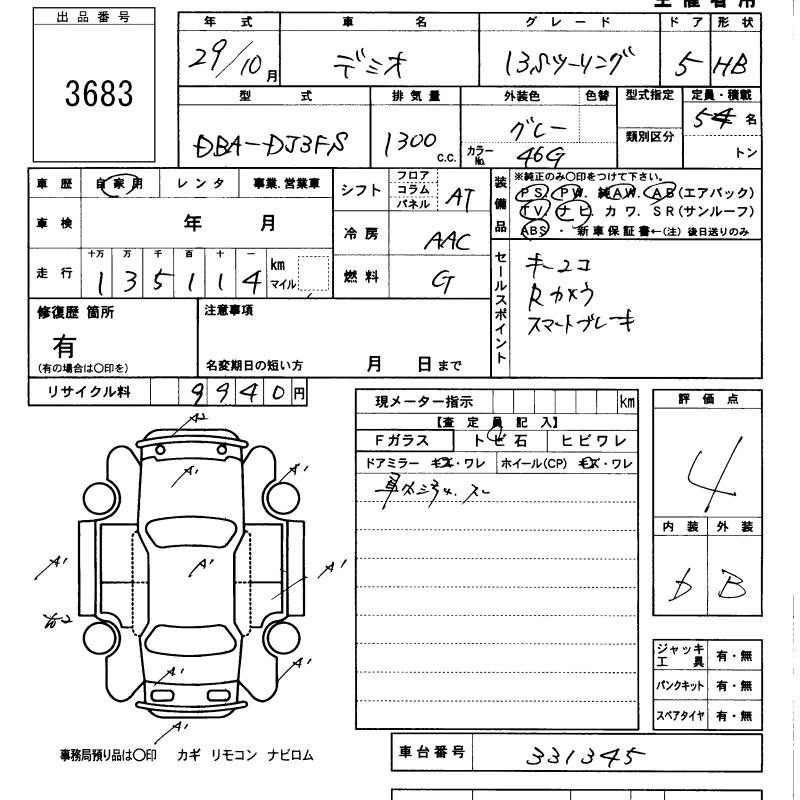 出品番号
3683
年式 車名 グレード ドア 形状
29/10月 デミオ 13Sツーリング 5 HB
型式 排気量 外装色 色替 型式指定 定員・積載
DBA-DJ3FS 1300 c.c. グレー 類別区分 5 名
カラーNo. 46G トン
車歴 自家用 レンタ 事業.営業車
車検 年 月
走行 十万 万 千 百 十 一
1 3 5 1 1 4 km マイル
シフト フロア コラム パネル AT
冷房 AAC
燃料 G
装備品 ※純正のみ〇印をつけて下さい。
PS. PW. 純AW. AB(エアバック)
TV. ナビ. カワ. SR(サンルーフ)
ABS ・ 新車保証書←(注) 後日送りのみ
セールスポイント
キーユコ
Rカメラ
スマートブレーキ
修復歴 箇所
有
(有の場合は〇印を)
注意事項
名変期日の短い方 月 日まで
リサイクル料 9940円
現メーター指示 km
【査定員記入】
Fガラス トビ石 ヒビワレ
ドアミラー キズ・ワレ ホイール(CP) キズ・ワレ
評価点
4
内装 外装
b B
A2
A'
A' A'
A' A' A'
A' A'
A'
ジャッキ 工具 有・無
パンクキット 有・無
スペアタイヤ 有・無
事務局預り品は〇印 カギ リモコン ナビロム
車台番号 331345